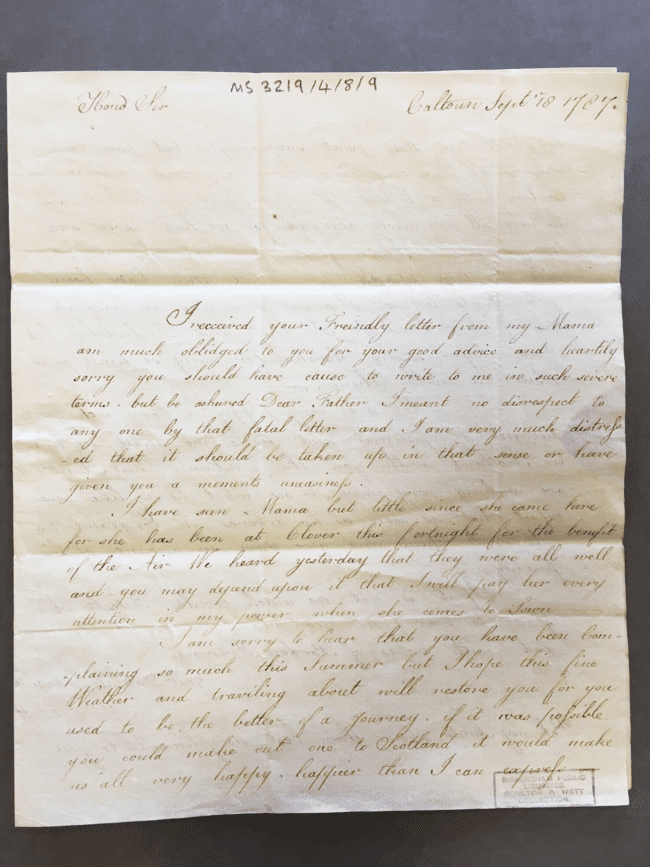 MS 3219/4/8/9
Hond Sir
Caltoun Sept 18 1787.
I received your Freindly letter from my Mama
am much oblidged to you for your good advice and heartily
sorry you should have cause to write to me in such severe
terms. but be ashured Dear Father I meant no disrespect to
any one by that fatal letter and I am very much distress
-ed that it should be taken up in that sense or have
given you a moments uneasiness.
I have seen Mama but little since she came here
for she has been at Clover this fortnight for the benefit
of the Air We heard yesterday that they were all well
and you may depend upon it that I will pay her every
attention in my power when she comes to Town
I am sorry to hear that you have been Com-
-plaining so much this Summer but I hope this fine
Weather and traviling about will restore you for you
used to be the better of a Journey. if it was possible
you could make out one to Scotland it would make
us all very happy. happier than I can express
BIRMINGHAM PUBLIC
LIBRARIES.
BOULTON & WATT
COLLECTION.